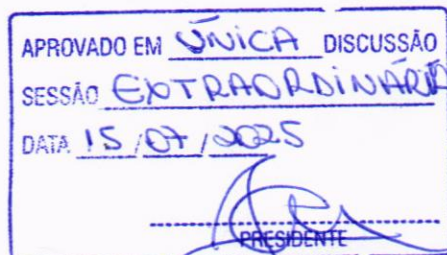 APROVADO EM ÚNICA DISCUSSÃO
SESSÃO EXTRAORDINÁRIA
DATA 15/07/2025
PRESIDENTE